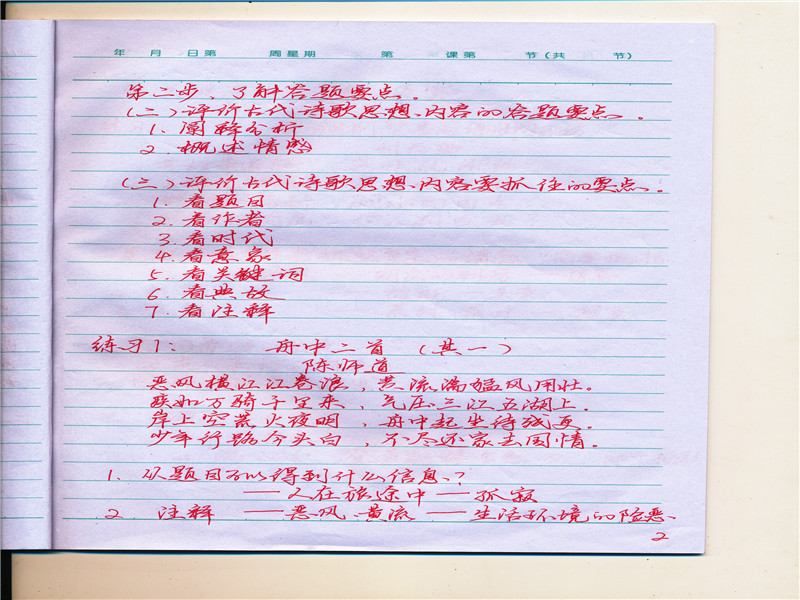 年 月 日第 周星期 第 课第 节(共 节)
第二步、了解答题要点。
(二)评价古代诗歌思想、内容的答题要点。
1. 阐释分析
2. 概述情感
(三)评价古代诗歌思想、内容要抓住的要点。
1. 看题目
2. 看作者
3. 看时代
4. 看意象
5. 看关键词
6. 看典故
7. 看注释
练习1: 舟中二首 (其一)
陈师道
恶风横江江卷浪,黄流湍猛风用壮。
疾如万骑千里来,气压三江五湖上。
岸上空荒火夜明,舟中起坐待残更。
少年行路今头白,不尽还家去国情。
1. 从题目可以得到什么信息?
——人在旅途中——孤寂
2 注释 ——恶风、黄流——生活环境的险恶、
2